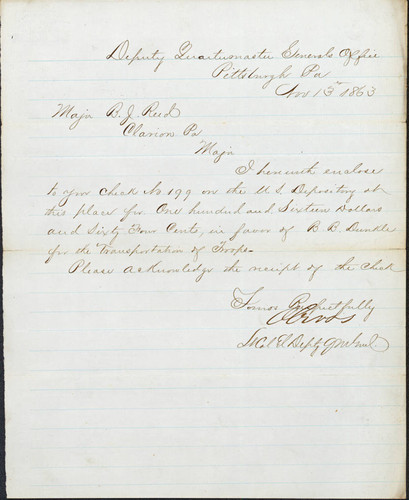 Deputy Quartermaster Generals Office
Pittsburgh Pa
Nov 13th 1863
Major B. J. Reed
Clarion Pa
Major
I herewith enclose
to you Check No 199 on the U S Depository at
this place for One hundred and Sixteen Dollars
and Sixty Four Cents, in favor of B B Dunkle
for the Transportation of Troops.
Please acknowledge the receipt of the Check
Yours Respectfully
Lt Col & Depty